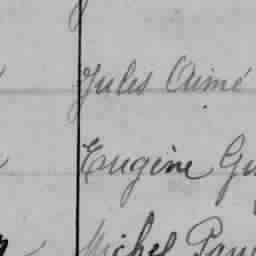 Jules Aimé
Eugène
Michel